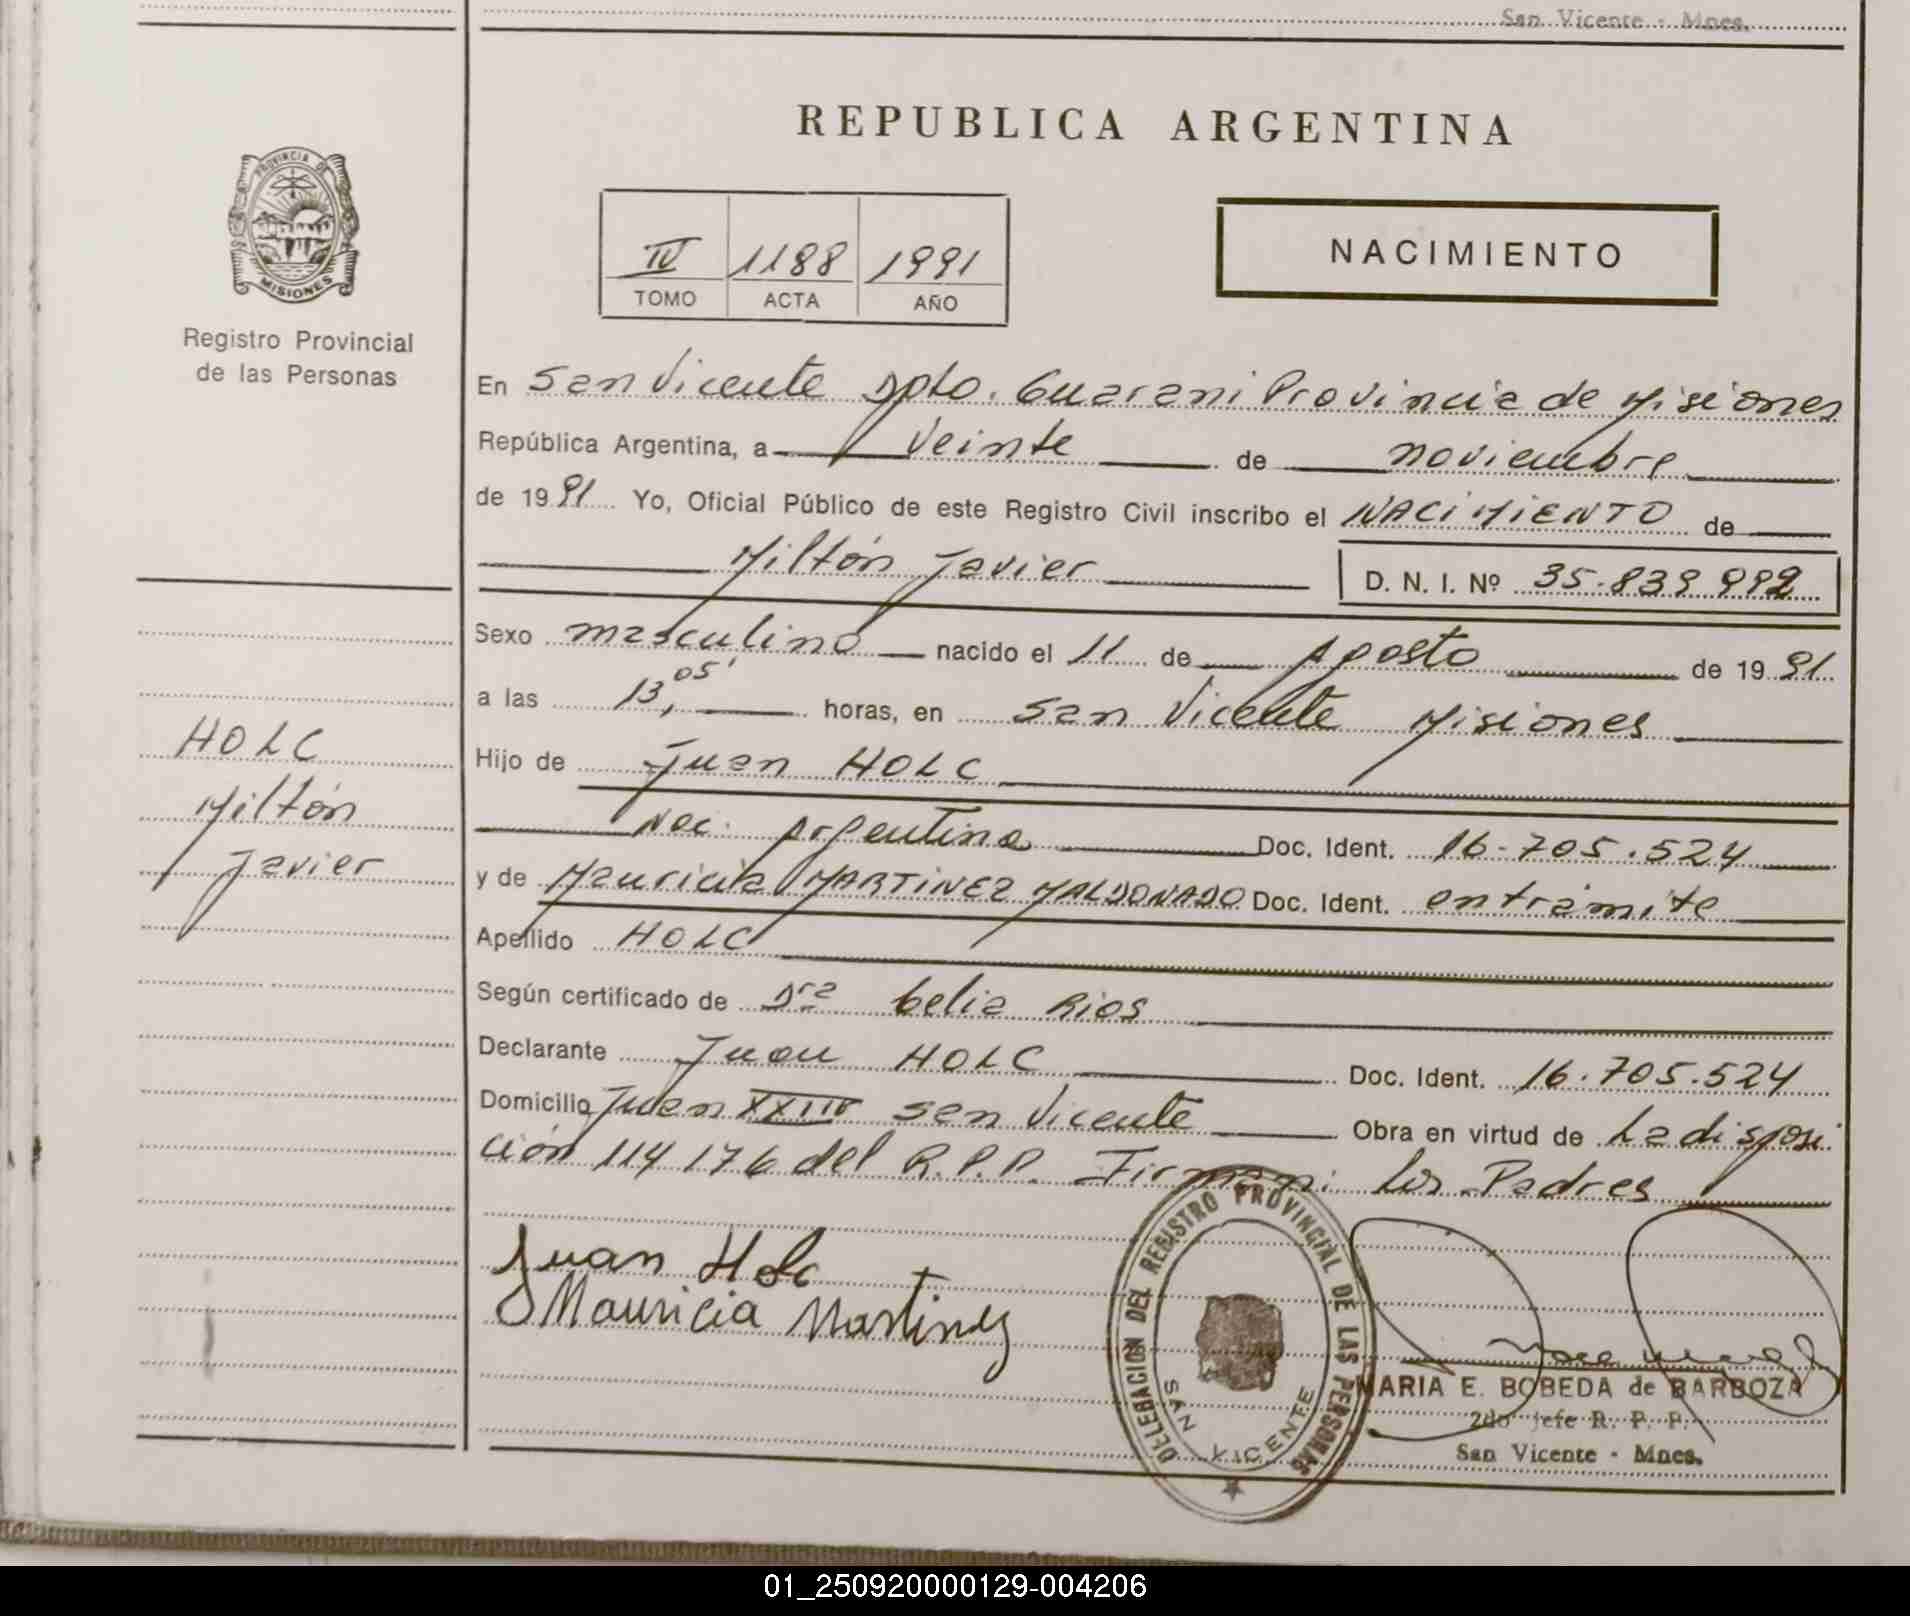 San Vicente - Mnes.
REPUBLICA ARGENTINA
PROVINCIA DE
MISIONES
Registro Provincial
de las Personas
IV 1188 1991
TOMO ACTA AÑO
NACIMIENTO
En San Vicente Dpto. Guarani Provincia de Misiones
República Argentina, a veinte de noviembre
de 1991 Yo, Oficial Público de este Registro Civil inscribo el NACIMIENTO de
Miltón Javier D. N. I. Nº 35.839.992
Sexo masculino nacido el 11 de Agosto de 1991
a las 13,05' horas, en San Vicente Misiones
Hijo de Juan HOLC
Nac. Argentina Doc. Ident. 16-705.524
y de Mauricia MARTINEZ MALDONADO Doc. Ident. entrámite
Apellido HOLC
Según certificado de Dra belia Rios
Declarante Juan HOLC Doc. Ident. 16.705.524
Domicilio Juan XXIII San Vicente Obra en virtud de La disposi
ción 114 176 del R.P.P. Firman: los Padres
HOLC
Miltón
Javier
Juan Holc
Mauricia Martinez
DELEGACION DEL REGISTRO PROVINCIAL DE LAS PERSONAS
SAN VICENTE
MARIA E. BOBEDA de BARBOZA
2do Jefe R. P. P.
San Vicente - Mnes.
01_250920000129-004206